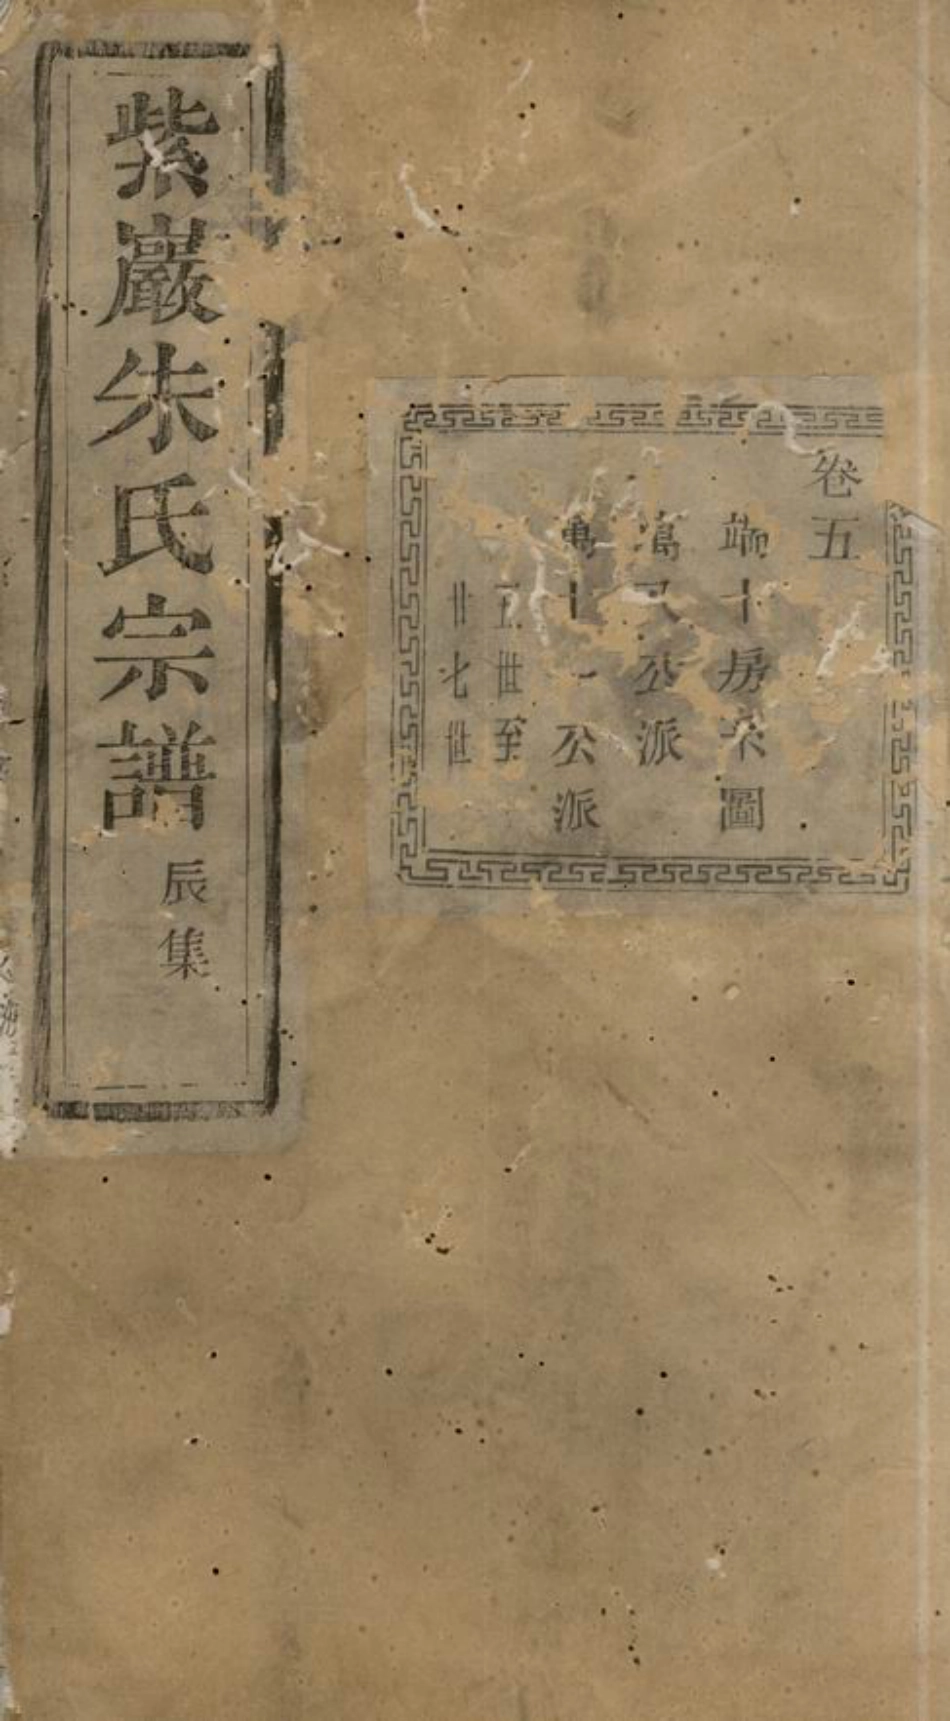 卷五
端十房朱圖
萬又公派
萬十一公派
五世至
廿七世
紫巖朱氏宗譜
辰集